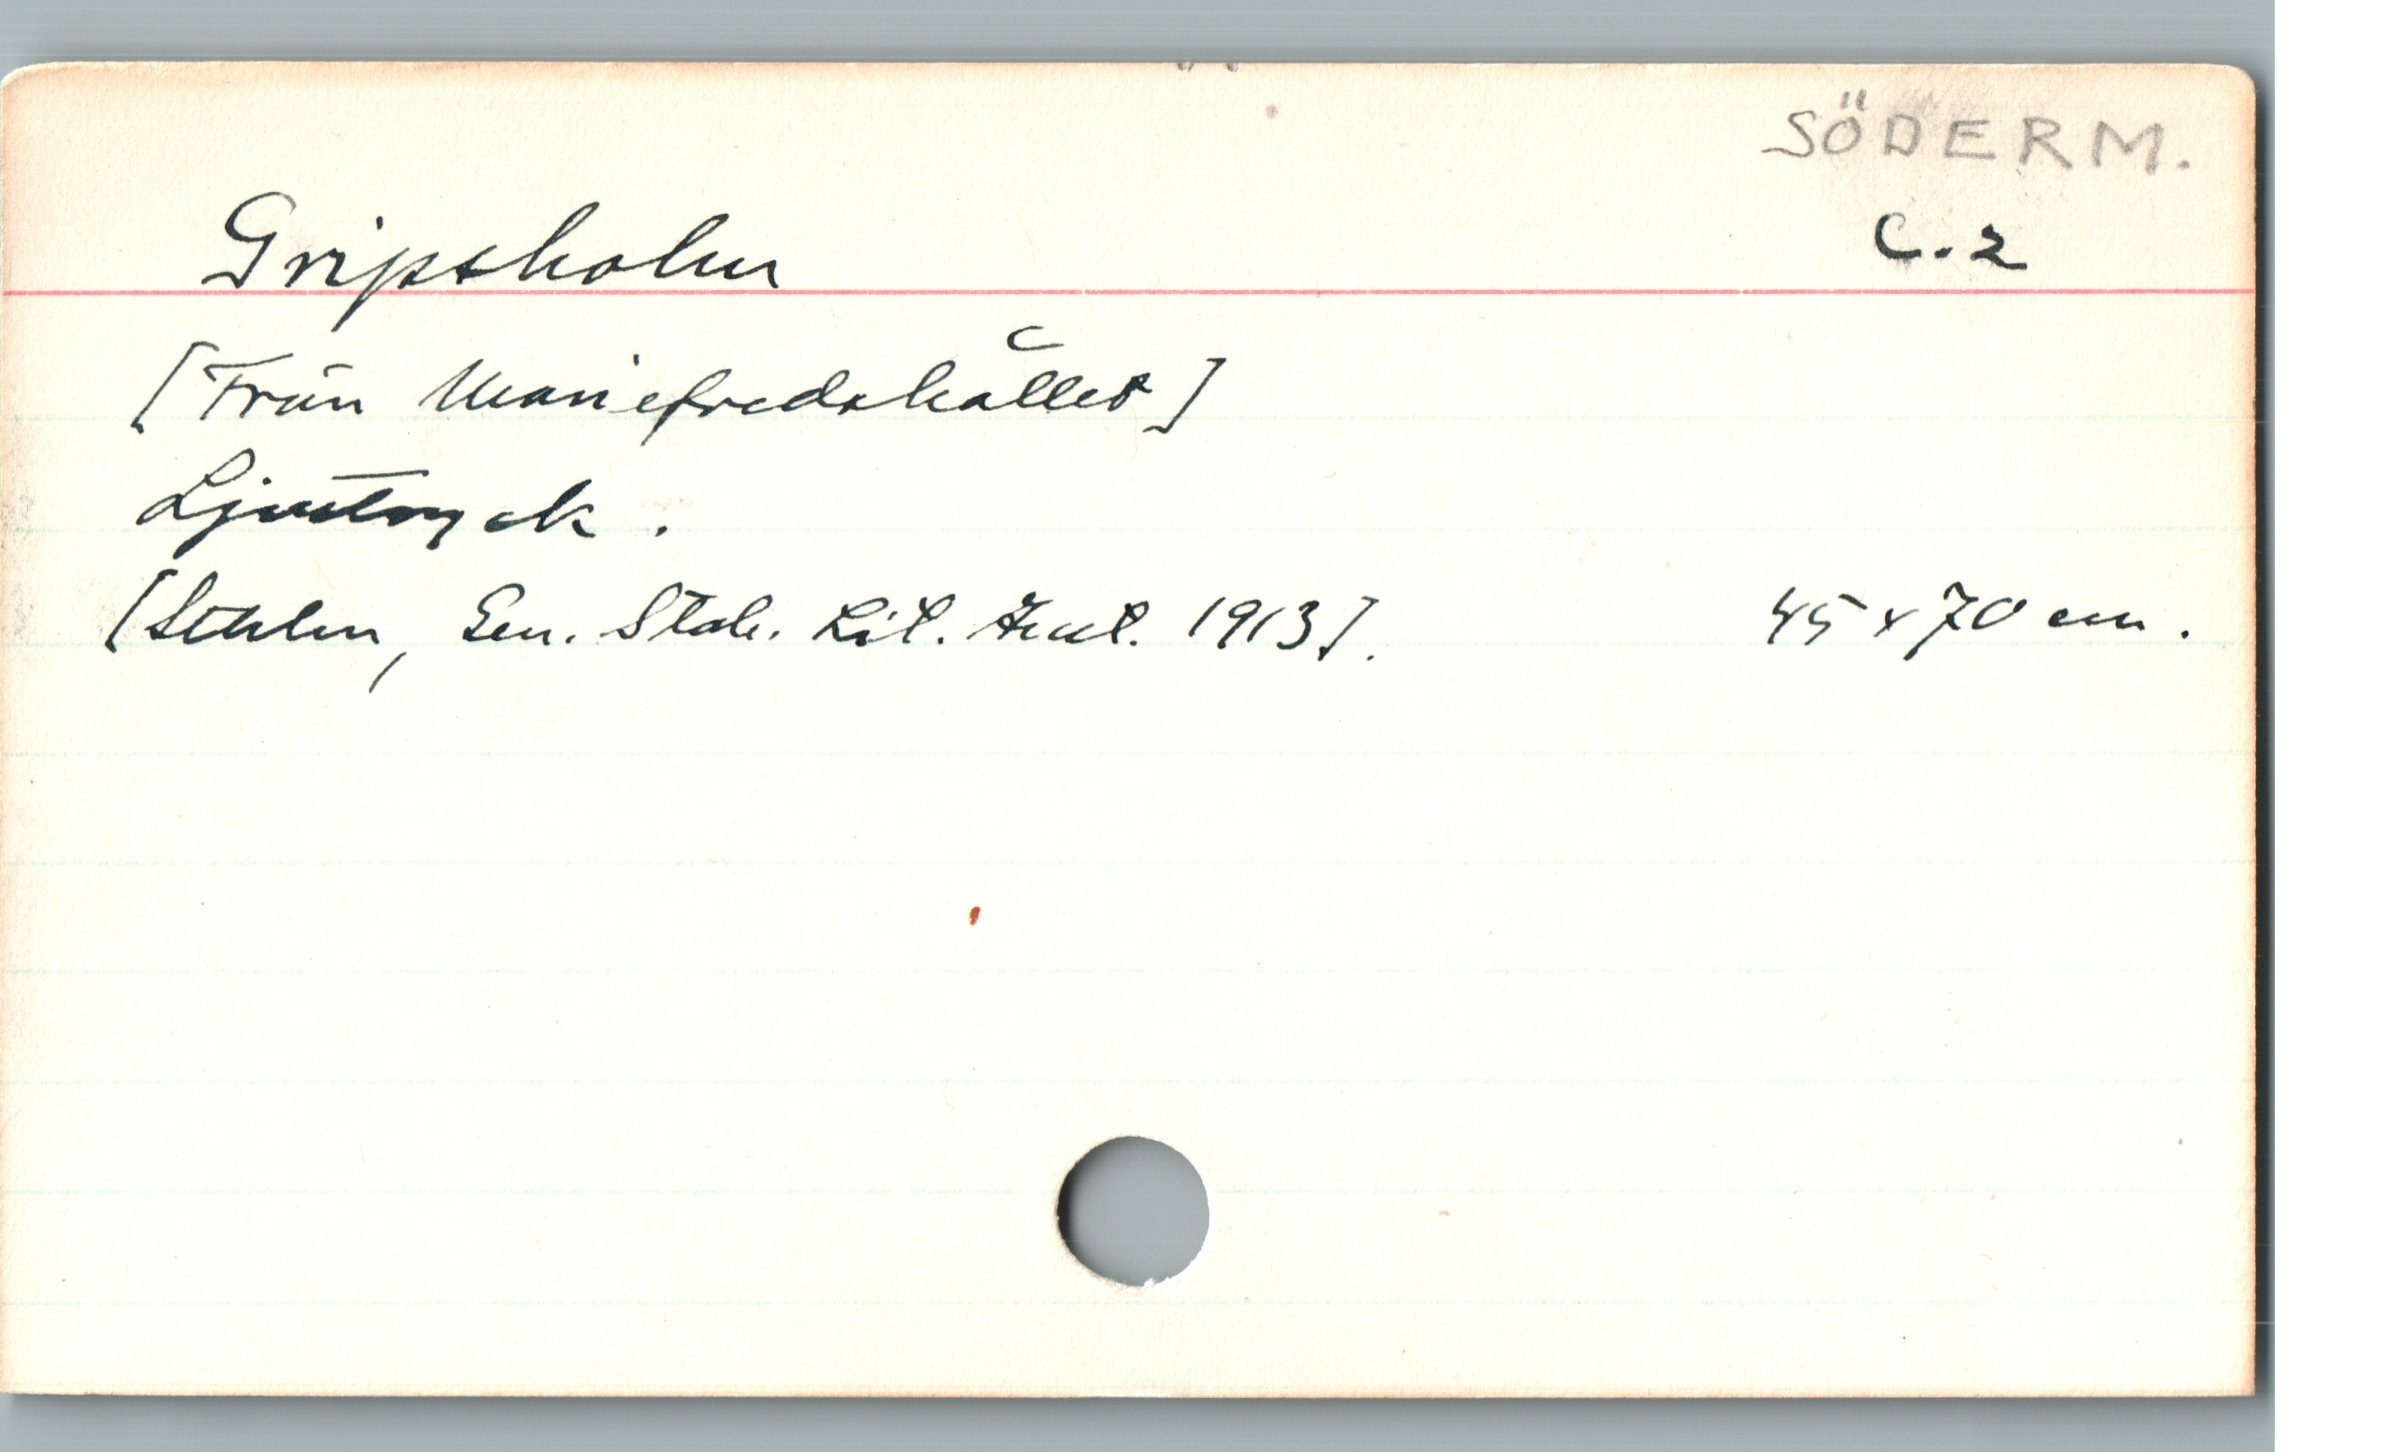 SÖDERM.
Gripsholm C.2
[Från Mariefredshållet]
Ljustryck.
[Sthlm, Gen. Stab. Lit. Anst. 1913]. 45 x 70 cm.